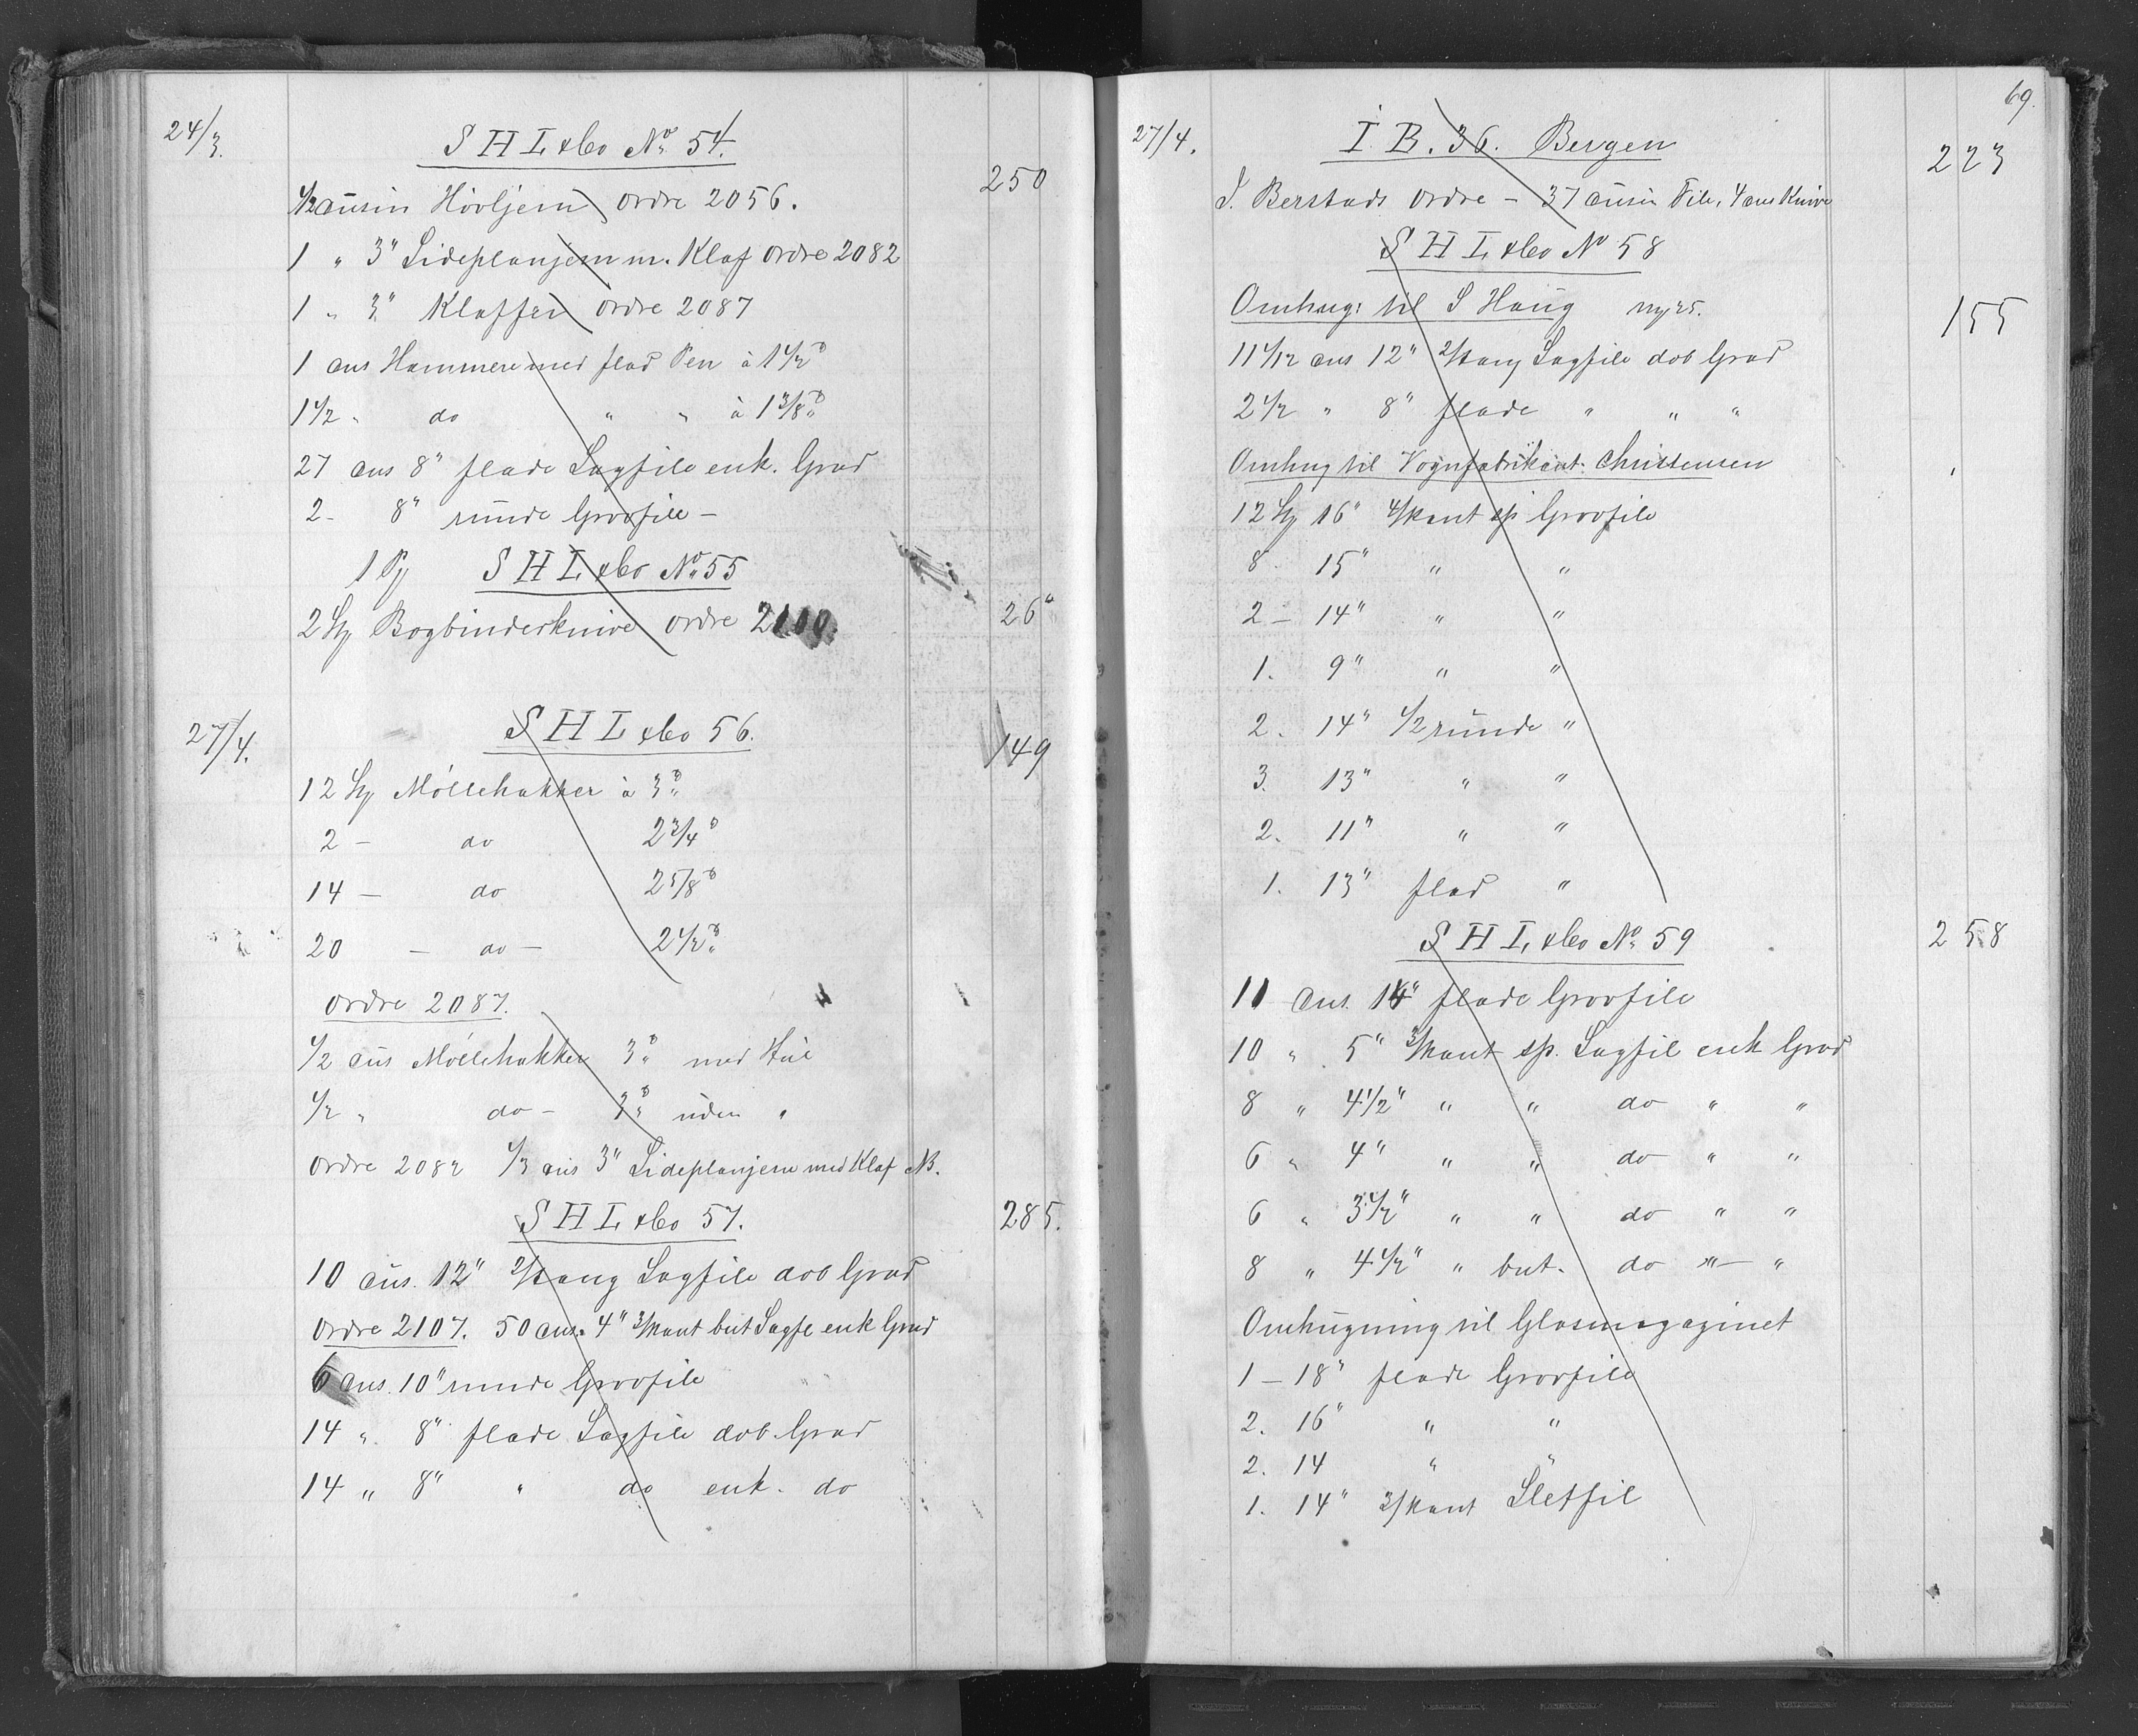 24/3.
S H L & Co No 54.
250
1/2 dusin Høvljern ordre 2056.
1 " 3" Sideplanjern m. Klaf ordre 2082
1 " 3" Klaffer ordre 2087
1 dus Hammere med flad Pen à 1 1/2 ℔
1 1/2 " do " " à 1 3/8 ℔
27 dus 8" flade Sagfile enk. Grad
2 - 8" runde Grovfile -
1 Pj S H L & Co No 55
2 St Bogbinderknive ordre 2100.
26"
27/4.
S H L & Co 56.
149
12 St Møllehakker à 3 ℔
2 - do 2 3/4 ℔
14 - do 2 5/8 ℔
20 - do - 2 1/2 ℔
ordre 2087.
1/2 dus Møllehakker 3 ℔ med Hul
1/2 " do - 3 ℔ uden "
ordre 2082 1/3 dus 3" Sideplanjern med Klaf NB.
S H L & Co 57.
285.
10 dus. 12" 2/tang Sagfile dob Grad
Ordre 2107. 50 dus. 4" 3/kant but Sagfl enk Grad
6 dus. 10" runde Grovfile
14 " 8" flade Sagfile dob. Grad
14 " 8" " do enk. do
69.
27/4.
I. B. 36. Bergen
223
I. Berstads ordre - 37 dusin File, 4 dus Knive
S H L & Co No 58
Omhug: til S Haug
155
11 1/12 dus 12" 2/tang Sagfile dob Grad
2 1/2 " 8" flade " " "
Omhug til Vognfabrikant. Christensen
12 St 16" 4/kant sp Grovfile
8 - 15" " "
2 - 14" " "
1. 9" " "
2. 14" 1/2 runde "
3. 13" " "
2. 11" " "
1. 13" flad "
S H L & Co No 59
258
11 dus. 14" flade Grovfile
10 " 5" 3/kant sp. Sagfil enk Grad
8 " 4 1/2" " " do " "
6 " 4" " " do " "
6 " 3 1/2" " " do " "
8 " 4 1/2" " but. do " - "
Omhugning til Glasmagazinet
1 - 18" flade Grovfile
2. 16" " "
2. 14 " "
1. 14" 3/kant Sletfil